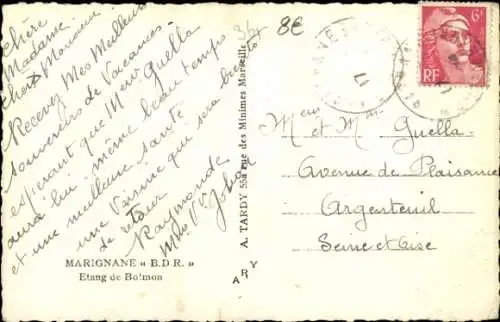 Chère
Madame,
Cher Monsieur
Recevez Mes Meilleurs
souvenirs de Vacances
espérant que Meur Guella
aura lui même beau temps
et une meilleure santé
une Voisine qui sera bientôt
de retour
Raymonde
Mme Vve
MARIGNANE « B.D.R. »
Etang de Bolmon
A. TARDY 55a rue des Minimes Marseille
ARY
8€
6F
RF
Meur et Mme Guella
Avenue de Plaisance
Argenteuil
Seine et Oise